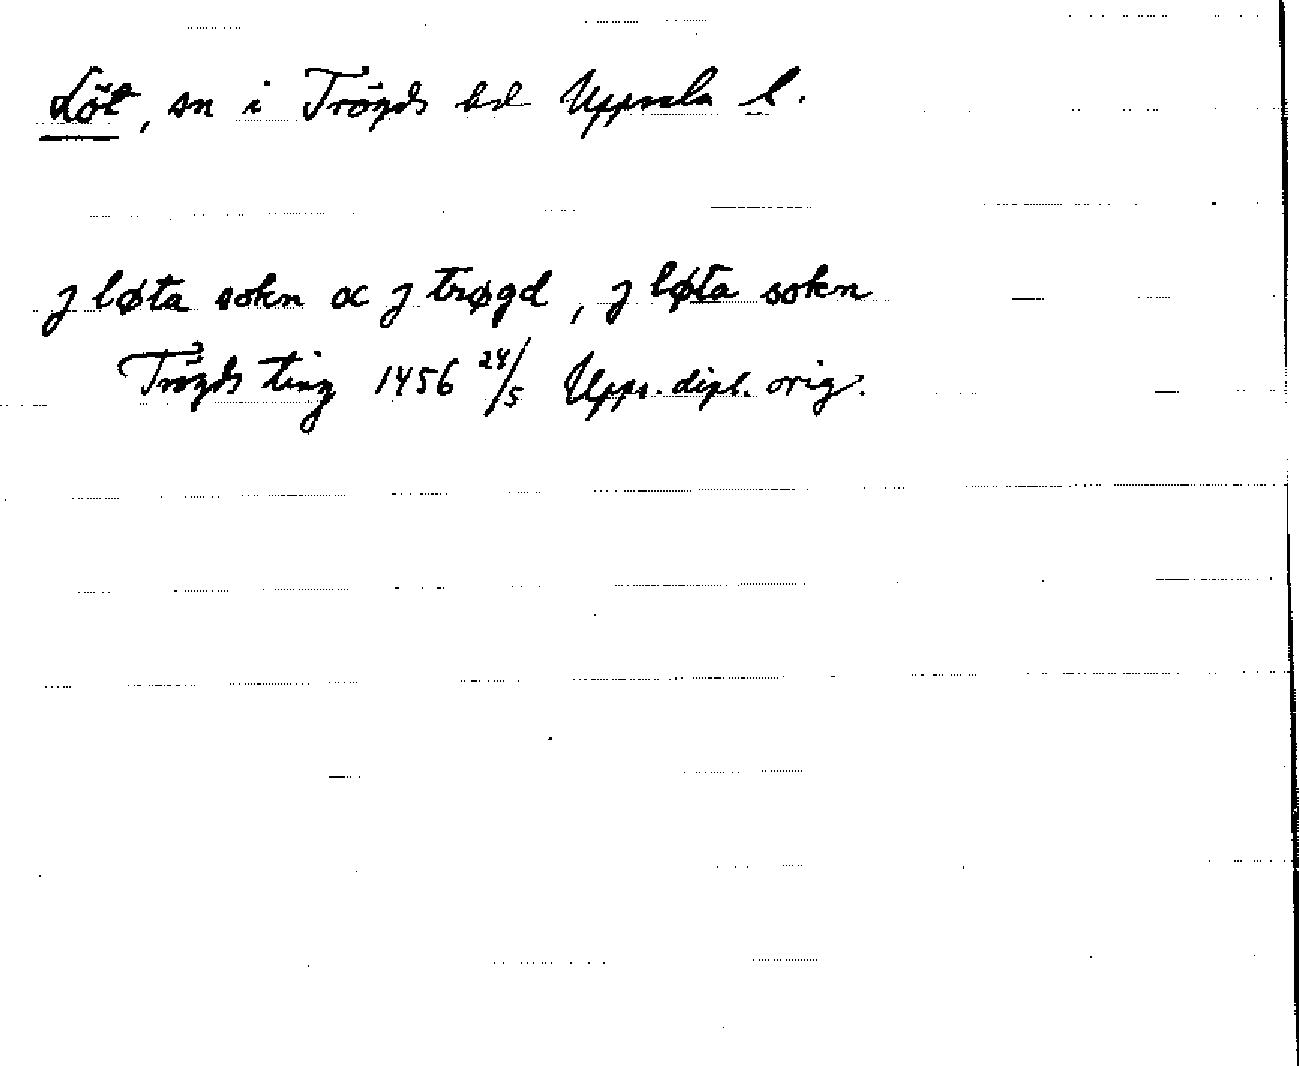 Löt, sn i Trögds hd Uppsala l.
j løta sokn oc j trøgd, j løta sokn
Trögds ting 1456 24/5 Upps. dipl. orig.